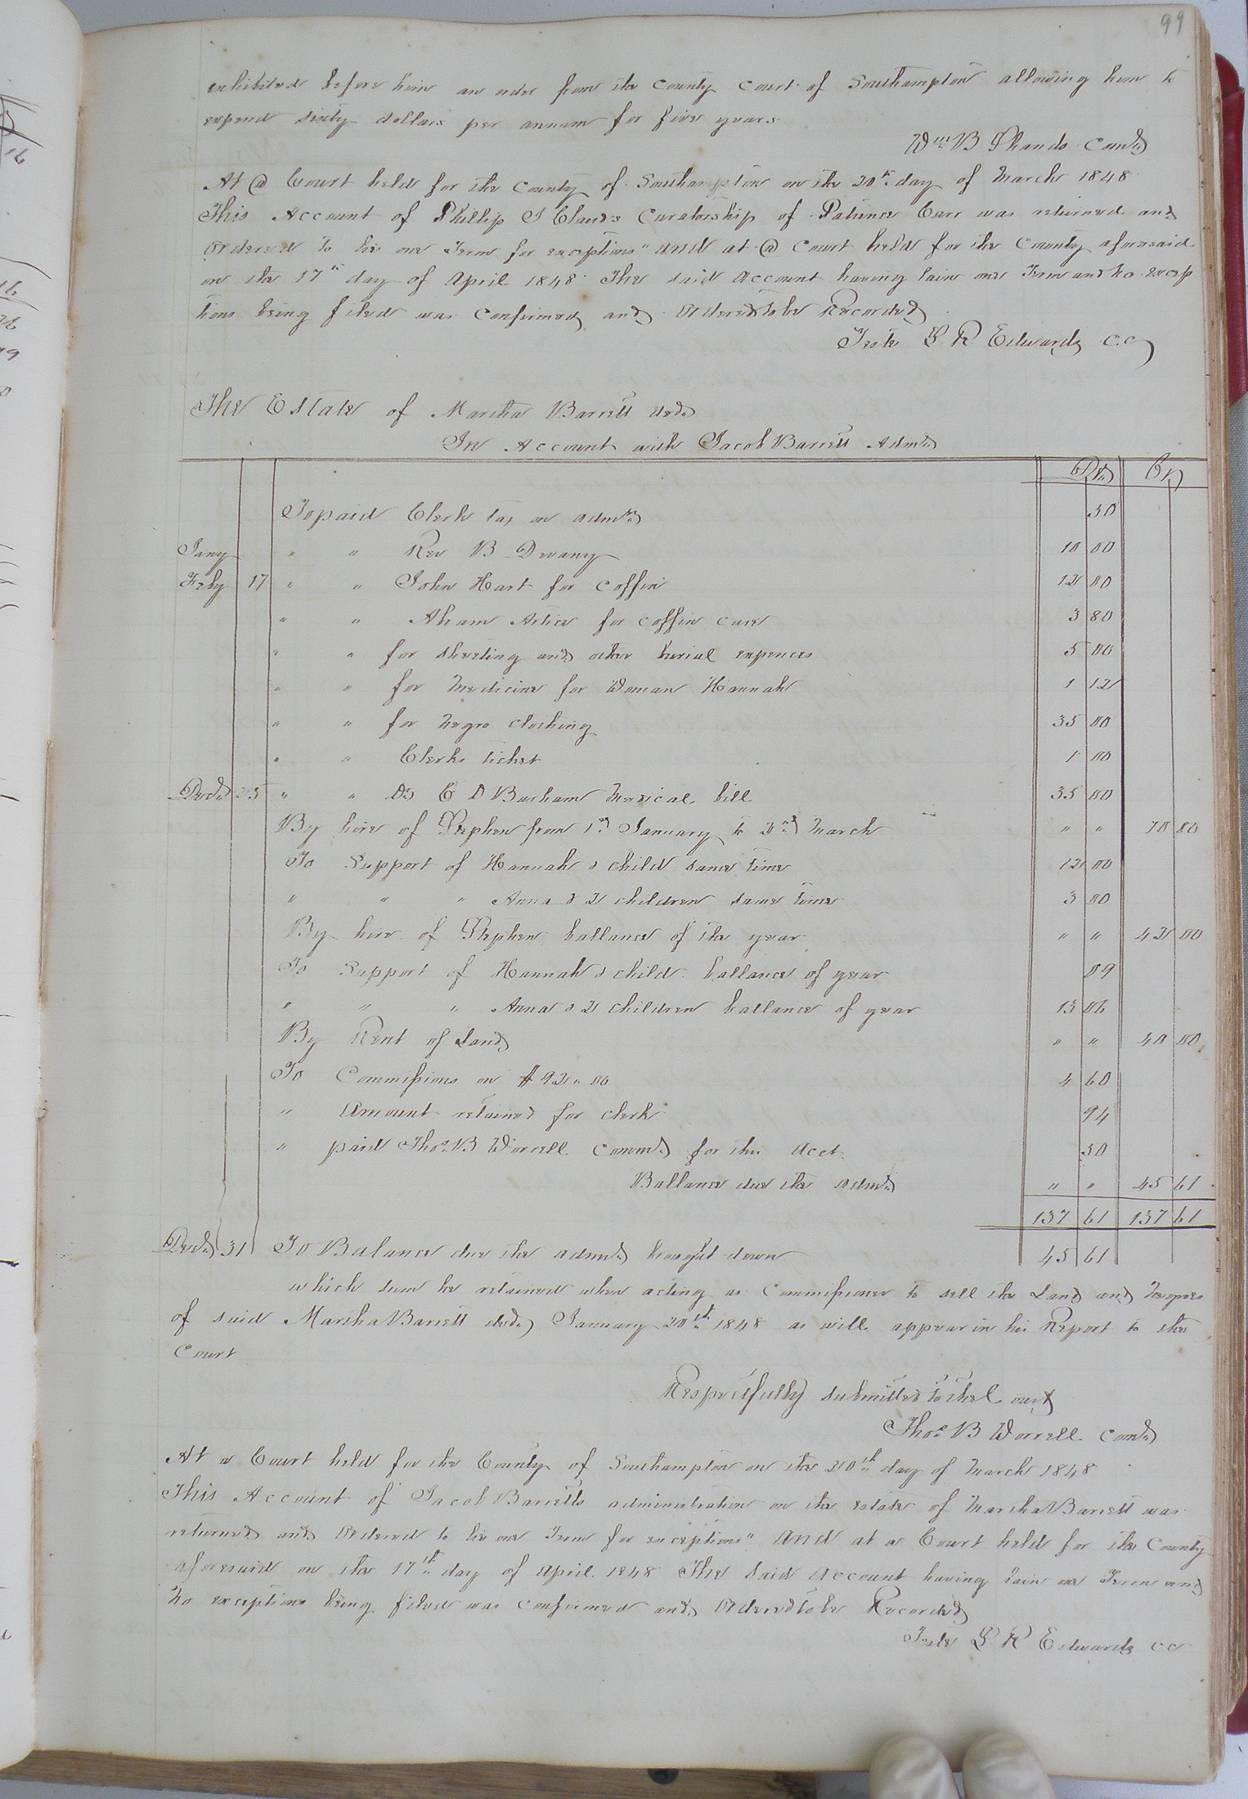 99
exhibited before him an order from the County Court of Southampton allowing him to
expend sixty dollars per annum for five years
Wm B Shands Comr
At @ Court held for the County of Southampton on the 20th day of March 1848
This Account of Phillip S Clauds Curatorship of Patience Carr was returned and
Ordered to lie one Term for exceptions" and at @ Court held for the County aforesaid
on the 17th day of April 1848 The said Account having lain one Term and no excep
tions being filed was Confirmed and Ordered to be Recorded
Teste L R Edwards C C
The Estate of Martha Barrett decd
In Account with Jacob Barrett Admr
Dr Cr
To paid Clerk tax on admr 50
Jany " " Rev B Devany 10 00
Feby 17 " " John Hart for coffin 12 00
" " Abram for coffin case 3 80
" " for sheeting and other burial expences 5 00
" " for medicine for Woman Hannah 1 12
" " for negro clothing 35 00
" " Clerks ticket 1 00
Decr 25 " " Dr C D Barham Medical bill 35 00
By hire of Stephen from 1st January to 3rd March " " 10 00
To Support of Hannah & child same time 12 00
" " " Anna & 2 children same time 3 00
By hire of Stephen ballance of the year " " 42 00
To Support of Hannah & child ballance of year 09
" " " Anna & 2 children ballance of year 13 06
By Rent of Land " " 40 00
To Commissions on $92.00 4 60
" Amount retained for clerk 94
" paid Thos B Worrell Commr for this Acct 50
Ballance due the Admr " " 45 61
137 61 137 61
Decr 31 To Balance due the admr brought down 45 61
which sum he retained when acting as Commissioner to sell the Land and Negroes
of said Martha Barrett decd January 20th 1848 as will appear in his Report to the
Court
Respectfully submitted to the Court
Thos B Worrell Comr
At a Court held for the County of Southampton on the 20th day of March 1848
This Account of Jacob Barretts administration on the estate of Martha Barrett was
returned and Ordered to lie one Term for exceptions" and at a Court held for the County
aforesaid on the 17th day of April 1848 The said Account having lain one Term and
no exceptions being filed was confirmed and Ordered to be Recorded
Teste L R Edwards CC